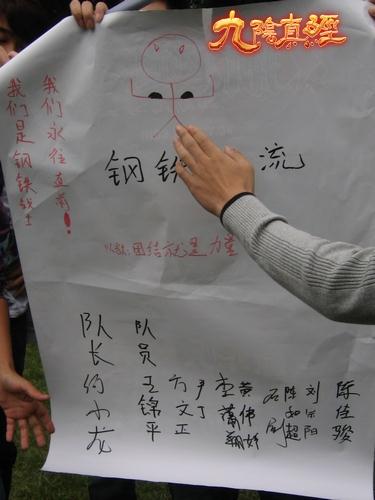 九陰真經
我们永往直前！
我们是钢铁战士
钢铁 流
队歌：团结就是力量
队长 何小龙
队员 王锦平
方文正
尹丁
李
黄伟
石刚
陈如超
刘宗阳
陈佳骏